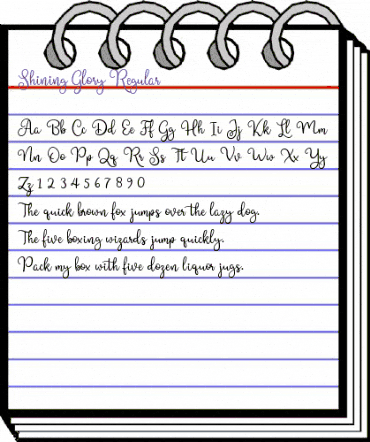 Shining Glory Regular
Aa Bb Cc Dd Ee Ff Gg Hh Ii Jj Kk Ll Mm
Nn Oo Pp Qq Rr Ss Tt Uu Vv Ww Xx Yy
Zz 1 2 3 4 5 6 7 8 9 0
The quick brown fox jumps over the lazy dog.
The five boxing wizards jump quickly.
Pack my box with five dozen liquor jugs.